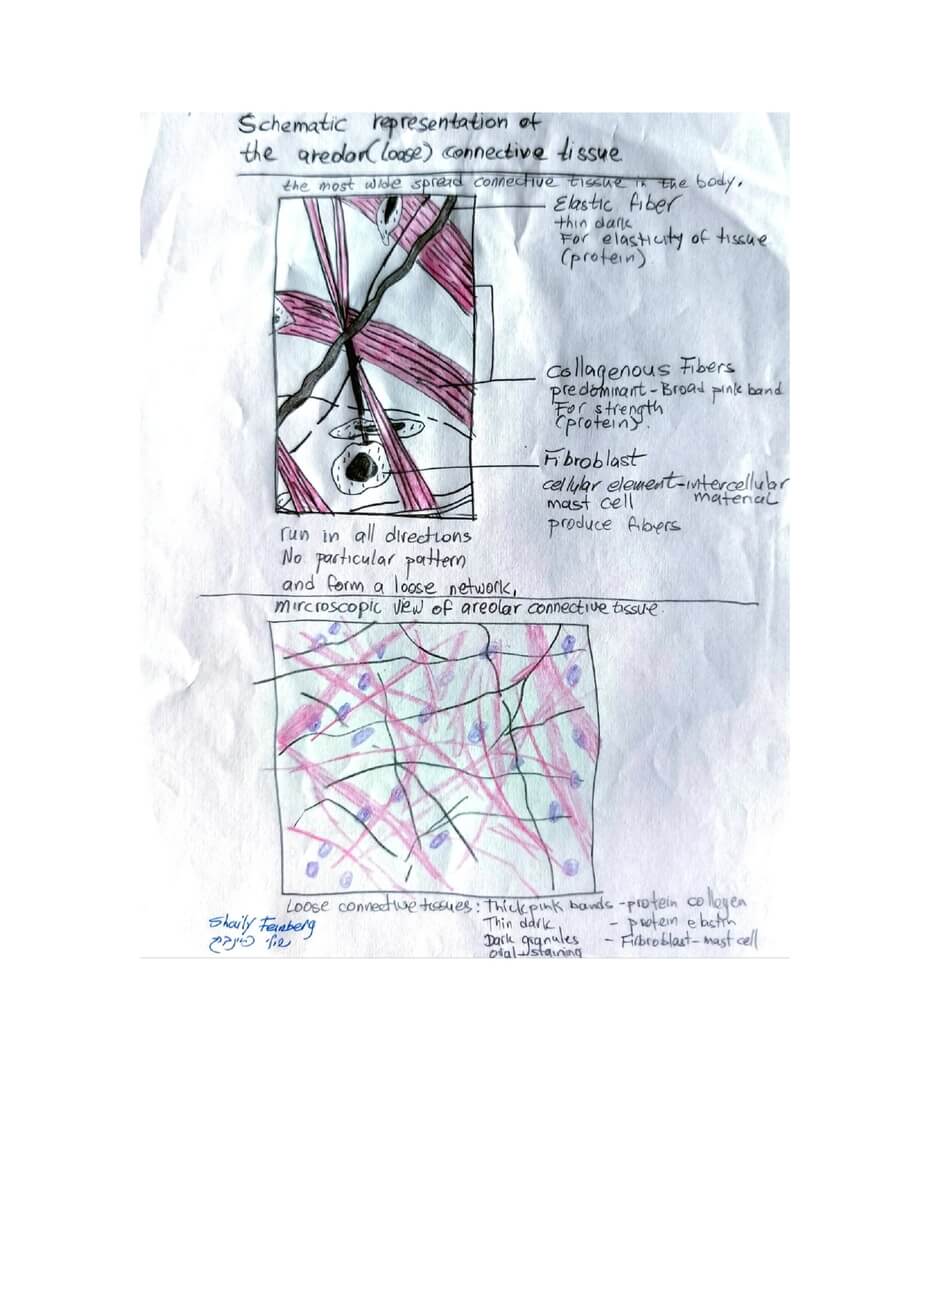 Schematic representation of
the areolar (loose) connective tissue
the most wide spread connective tissue in the body.
Elastic fiber
thin dark
For elasticity of tissue
(protein)
Collagenous Fibers
predominant - Broad pink band
For strength
(protein).
Fibroblast
cellular element - intercellular
material
mast cell
produce fibers
run in all directions
No particular pattern
and form a loose network,
mircroscopic view of areolar connective tissue.
Loose connective tissues: Thick pink bands - protein collagen
Thin dark - protein elastin
Dark granules - Fibroblast - mast cell
oval + staining
Shaily Feinberg
שילי פיינברג